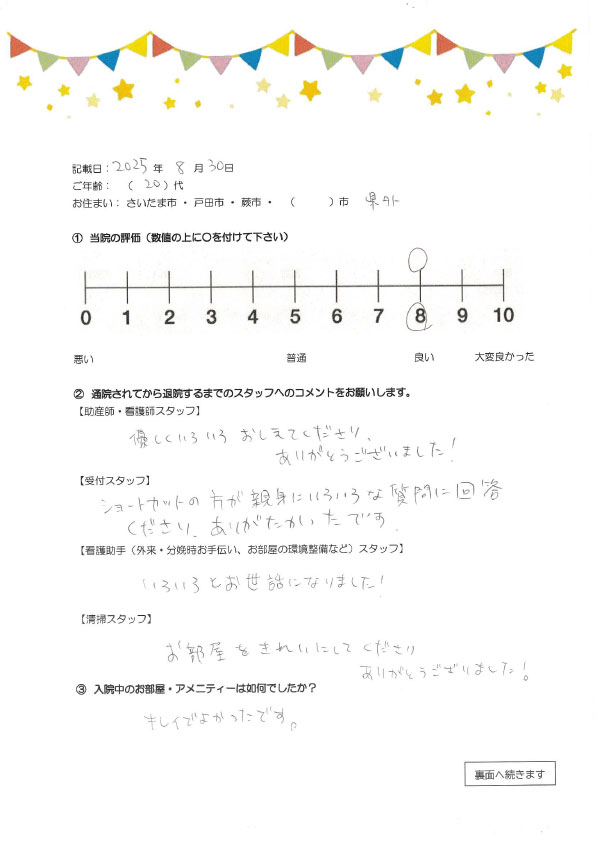 記載日：2025年 8月30日
ご年齢：（20）代
お住まい：さいたま市・戸田市・蕨市・（ ）市 県外
① 当院の評価（数値の上に〇を付けて下さい）
0 1 2 3 4 5 6 7 8 9 10
悪い 普通 良い 大変良かった
② 通院されてから退院するまでのスタッフへのコメントをお願いします。
【助産師・看護師スタッフ】
優しくいろいろおしえてくださり、
ありがとうございました！
【受付スタッフ】
ショートカットの方が親身にいろいろな質問に回答
くださり、ありがたかったです。
【看護助手（外来・分娩時お手伝い、お部屋の環境整備など）スタッフ】
いろいろとお世話になりました！
【清掃スタッフ】
お部屋をきれいにしてくださり
ありがとうございました！
③ 入院中のお部屋・アメニティーは如何でしたか？
キレイでよかったです。
裏面へ続きます